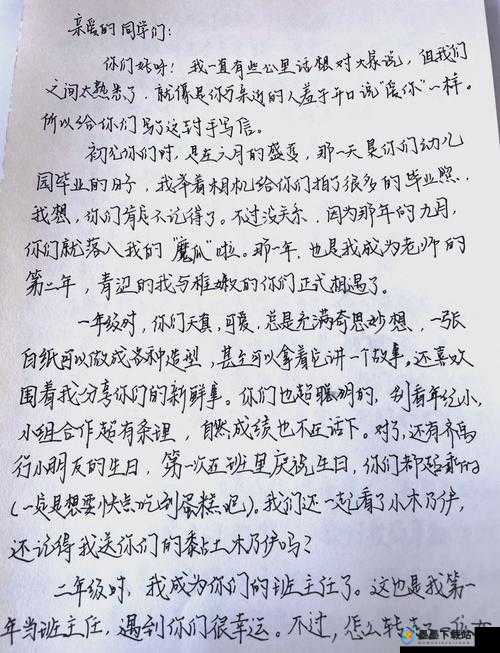 亲爱的同学们:
你们好呀!我一直有些心里话想对大家说,但我们
之间太熟悉了,就像是你对亲近的人羞于开口说"爱你"一样。
所以给你们写了这封手写信。
初见你们时,是在六月的盛夏,那一天是你们幼儿
园毕业的日子,我举着相机给你们拍了很多的毕业照。
我想,你们肯定不记得了。不过没关系,因为那年的九月,
你们就落入我的"魔爪"啦。那一年,也是我成为老师的
第二年,青涩的我与稚嫩的你们正式相遇了。
一年级时,你们天真,可爱,总是充满奇思妙想,一张
白纸可以做成各种造型,甚至可以拿着它讲一个故事。还喜欢
围着我分享你们的新鲜事。你们也超聪明的,别看年纪小,
小组合作超有条理,自然成绩也不在话下。对了,还有
行小朋友的生日,第一次在班里庆祝生日,你们都超
(一定是想要快点吃到蛋糕吧)。我们还一起看了小木乃伊,
还记得我送你们的黏土木乃伊吗?
二年级时,我成为你们的班主任了。这也是我第一
年当班主任,遇到你们很幸运。不过,怎么转
下载站